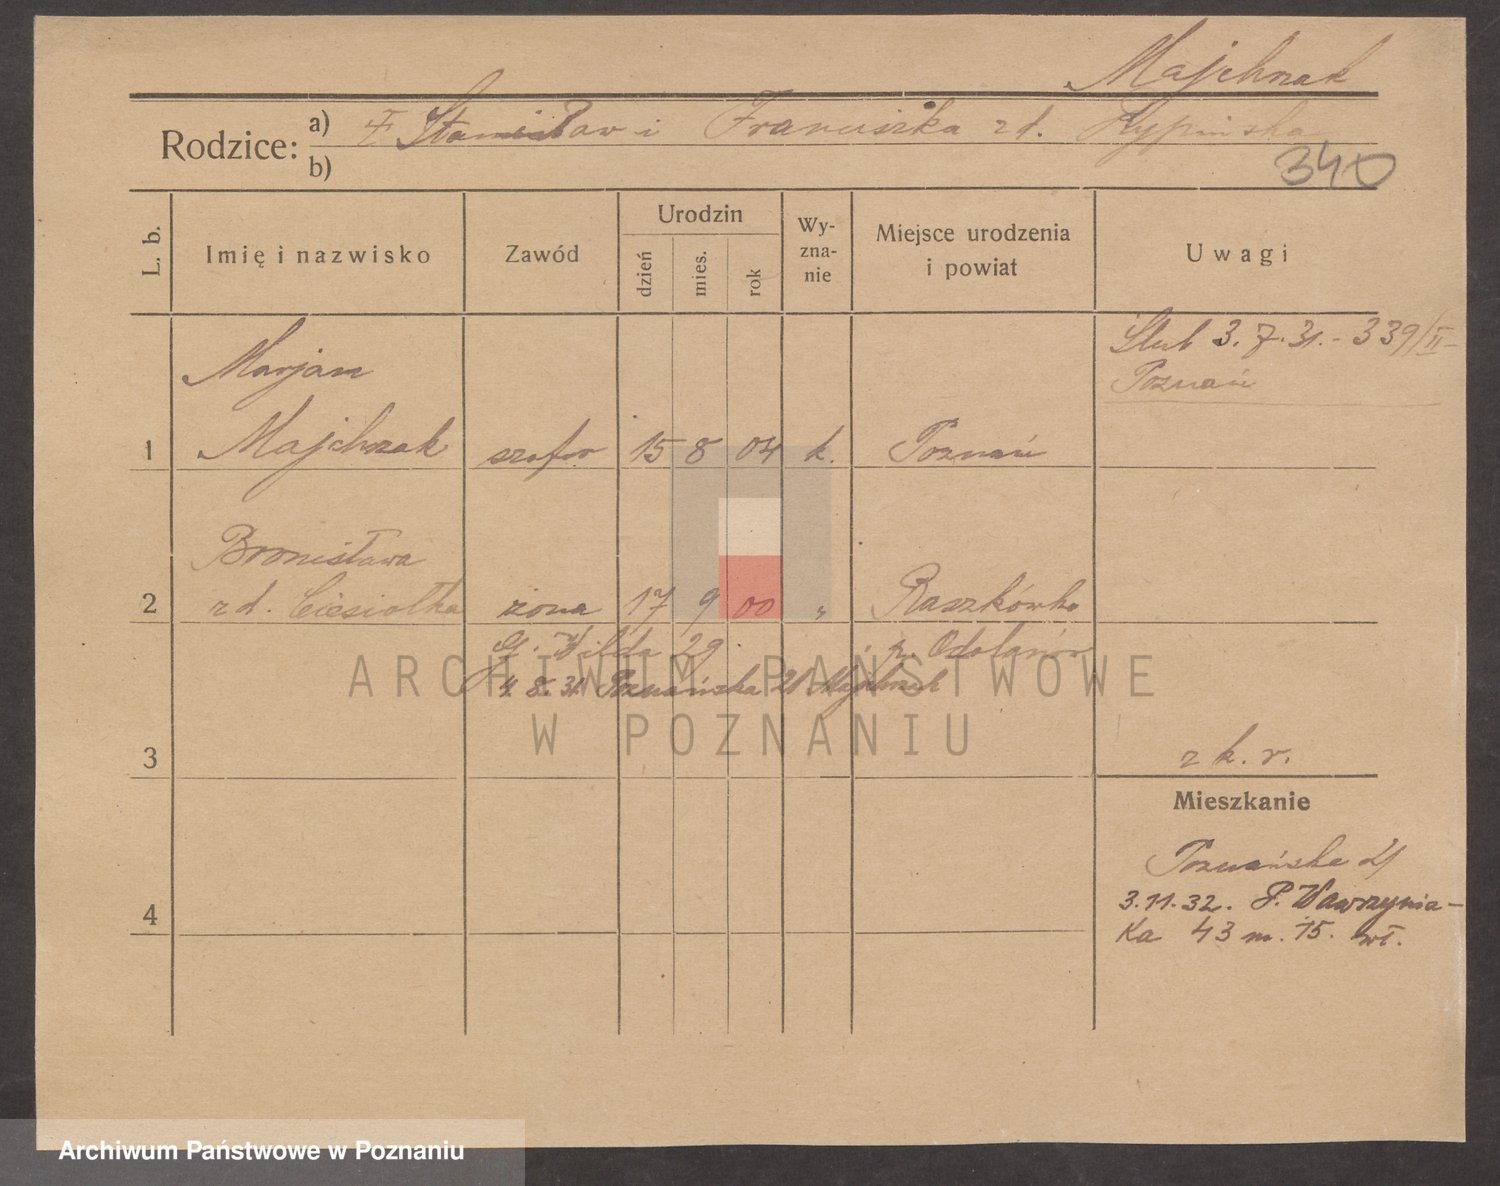 Majchrzak
Rodzice: a) Stanisław i Franciszka z d.
b)
340
L. b.
Imię i nazwisko
Zawód
Urodzin
dzień
mies.
rok
Wy-
zna-
nie
Miejsce urodzenia
i powiat
Uwagi
Ślub 3.7.31. - 339/II
Poznań
Marjan
1 Majchrzak szofer 15 8 04 k. Poznań
Bronisława
2 z d. Ciesiołka żona 17 9 00 " Raszkówka
G. Wilda 29 p. Odolanów
4. 8. 31. Poznańska 21
ARCHIWUM PAŃSTWOWE
W POZNANIU
3
z k. r.
Mieszkanie
Poznańska 21
3.11.32. P. Wawrzynia-
4
ka 43 m. 15. wł.
Archiwum Państwowe w Poznaniu